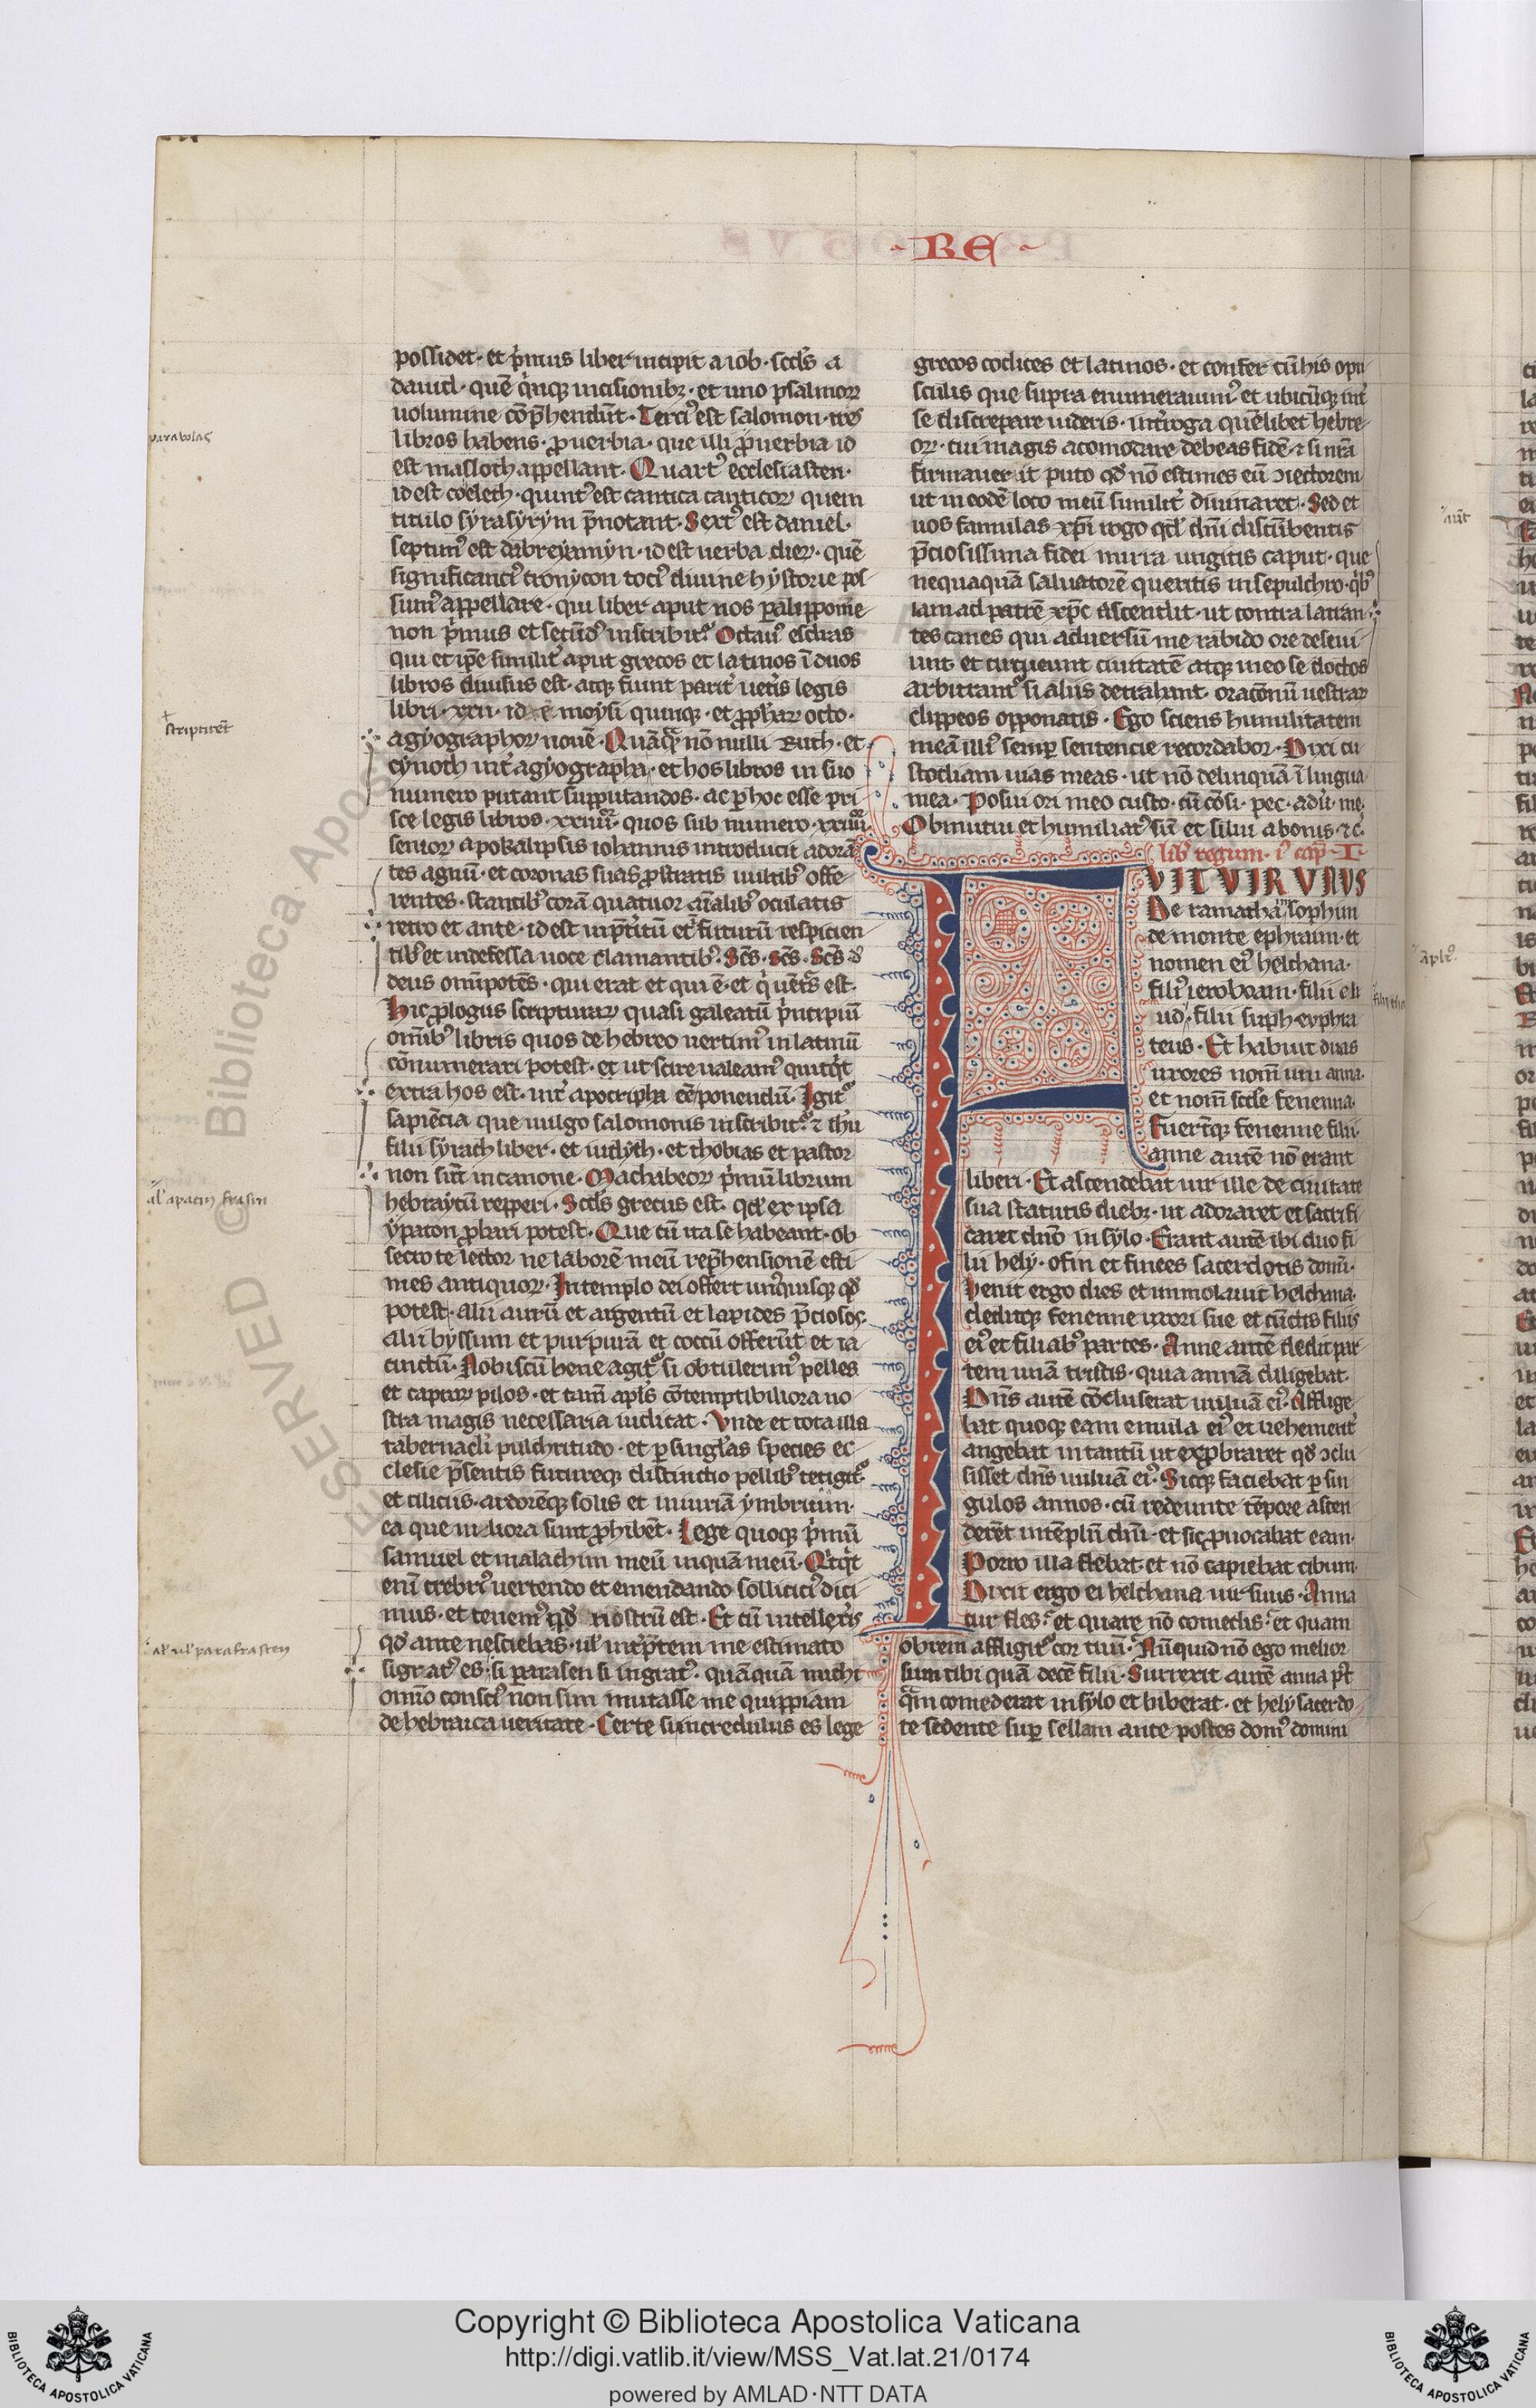 · RE ·
possidet· et p̾mus liber incipit a iob· scd̾s a
dauid· quē q̾nq; incisionibꝫ· et uno psalmoꝝ
uolumine cōp̄hendūt· Terciꝰ est salomon· tres
libros habens· ꝓuerbia· que illi ꝓuerbia id
est masloth appellant· Quartꝰ ecclesiasten·
id est coeleth· quintꝰ est cantica canticoꝝ quem
titulo syrasyrym p̄notant· Sextꝰ est daniel·
septimꝰ est dabreyamyn· id est uerba dieꝝ· quē
significanciꝰ cronycon tociꝰ diuine hystorie pos
sumꝰ appellare· qui liber aput nos paralippome
non p̾mus et scd̾s inscribit᷑· Octauꝰ esdras
qui et ip̄e similit᷑ aput grecos et latinos ī duos
libros diuisus est· atq; fiunt parit᷑ uet᷑is legis
libri· xxii· id ē moysi quinq;· et ꝓphaꝝ octo·
agyographoꝝ nouē· Quāq̾ nō nulli Ruth· et
cynoth int᷑ agyographa· et hos libros in suo
numero putant supputandos· ac ꝑ hoc esse pri
sce legis libros· xxiiiiꝛ· quos sub numero· xxiiii
senioꝝ apokalipsis iohannis introducit adorā
tes agnū· et coronas suas ꝓstratis uultibꝰ offe
rentes· stantibꝰ corā quatuor aīalibꝰ oculatis
retro et ante· id est in p̄t᷑itū et futurū respicien
tibꝰ et indefessa uoce clamantibꝰ· Sc̄s· sc̄s· Sc̄s d̄
deus omīpotēs· qui erat et qui ē· et q̾ uētꝰs est·
Hic ꝓlogus scripturaꝝ quasi galeatū p̾ncipiū
omībꝰ libris quos de hebreo uertimꝰ in latinū
cōnumerari potest· et ut scire ualeamꝰ quicq̾t
extra hos est· int᷑ apocripha eē ponendū· Igit᷑
sapiēcia que uulgo salomonis inscribit᷑· ⁊ ihū
filii syrach liber· et iudyth· et thobias et pastor
non sūt in canone· Machabeoꝝ p̾mū librum
hebraycū repperi· Scd̾s grecus est· qd̾ ex ipsa
ypaton ꝓbari potest· Que cū ita se habeant· ob
secro te lector ne laborē meū rep̄hensionē esti
mes antiquoꝝ· In templo dei offert unꝰquisq; qd̾
potest· alii aurū et argentū et lapides p̄ciosos·
alii byssum et purpurā et coccū offerūt et ia
cinctū· Nobiscū bene agit᷑ si obtulerimꝰ pelles
et capraꝝ pilos· et tam̄ apl̄s cōtemptibiliora no
stra magis necessaria iudicat· Vnde et tota illa
tabernacl̄i pulchritudo· et ꝑ singl̄as species ec
clesie p̄sentis futureq; distinctio pellibꝰ tegit᷑
et ciliciis· ardorēq; solis et iniuriā ymbrium·
ea que uiliora sunt ꝓhibēt· Lege quoq; p̾mū
samuel et malachim meū inquā meū· Q̾cq̾t
eni᷑ crebriꝰ uertendo et emendando solliciciꝰ dici
mus· et tenemꝰ qd̾ nostrū est· Et cū intellex̾is
qd̾ ante nesciebas· ul̾ int᷑p̄tem me estimato
si gratꝰ es· si parasen si ingratꝰ· quāquā michi
omīo consciꝰ non sim mutasse me quippiam
de hebraica ueritate· Certe si incredulus es lege
grecos codices et latinos· et confer cū his opu
sculis que supra enumerauimꝰ et ubicūq; int᷑
se discrepare uideris· int᷑roga quēlibet hebre
oꝝ· cui magis acomodare debeas fidē· ⁊ si nr̄a
firmauerit puto qd̾ nō estimes eū ꝯiectorem
ut in eodē loco meū similit᷑ diuinaret· Sed et
uos famulas xp̄i rogo qd̾ dn̄i discūbentis
p̄ciosissima fidei mirra ungitis caput· que
nequaquā saluatorē queritis in sepulchro· q̾bꝰ
iam ad patrē xp̄c ascendit· ut contra latran
tes canes qui aduersū me rabido ore deseui
unt et circueunt ciuitatē atq; in eo se doctos
arbitrant᷑ si aliis detrahant· oracōnū uestraꝝ
clippeos opponatis· Ego sciens humilitatem
meā illiꝰ semꝑ sentencie recordabor· Dixi cu
stodiam uias meas· ut nō delinquā ī lingua
mea· Posui ori meo custo· cū cōsi· pec· adū· me·
Obmutui et humiliatꝰ sū et silui a bonis· ⁊c̄·
lib᷑ regum· iꝰ cap̄· I·
FVIT VIR VNVS
De ramatha īn sophim
de monte ephraim· et
nomen eiꝰ helchana·
filiꝰ ieroboam· filii eli
ud· filii suph euphra
teus· Et habuit duas
uxores nom̄ uni anna·
et nom̄ scd̾e fenenna·
Fuerūtq; fenenne filii·
anne autē nō erant
liberi· Et ascendebat uir ille de ciuitate
sua statutis diebꝫ· ut adoraret et sacrifi
caret dn̄o in sylo· Erant autē ibi duo fi
lii hely· ofin et finees sacerdotis domī·
Venit ergo dies et immolauit helchana·
deditq; fenenne uxori sue et cūctis filiis
eiꝰ et filiabꝰ partes· Anne autē dedit par
tem unā tristis· quia annā diligebat
Dn̄s autē cōcluserat uuluā eiꝰ· Afflige
bat quoq; eam emula eiꝰ et uehement᷑
angebat in tantū ut exꝓbraret qd̾ ꝯclu
sisset dn̄s uuluā eiꝰ· Sicq; faciebat ꝑ sin
gulos annos· cū redeunte tēpore ascen
derēt in tēplū dn̄i· et sic ꝓuocabat eam·
Porro illa flebat et nō capiebat cibum·
Dixit ergo ei helchana uir suus· Anna
cur fles· et quare nō comedis· et quam
obrem affligit᷑ cor tuū· Nūquid nō ego melior
sum tibi quā decē filii· Surrexit autē anna pꝰt
q̾m comederat in sylo et biberat· et hely sacerdo
te sedente suꝑ sellam ante postes domꝰ domini
parabolas
scriptitēt
al̾ ul̾ parafrasten
aūt
Biblioteca Apos
RESERVED ©
Copyright © Biblioteca Apostolica Vaticana
http://digi.vatlib.it/view/MSS_Vat.lat.21/0174
powered by AMLAD·NTT DATA
BIBLIOTECA APOSTOLICA VATICANA
BIBLIOTECA APOSTOLICA VATICANA